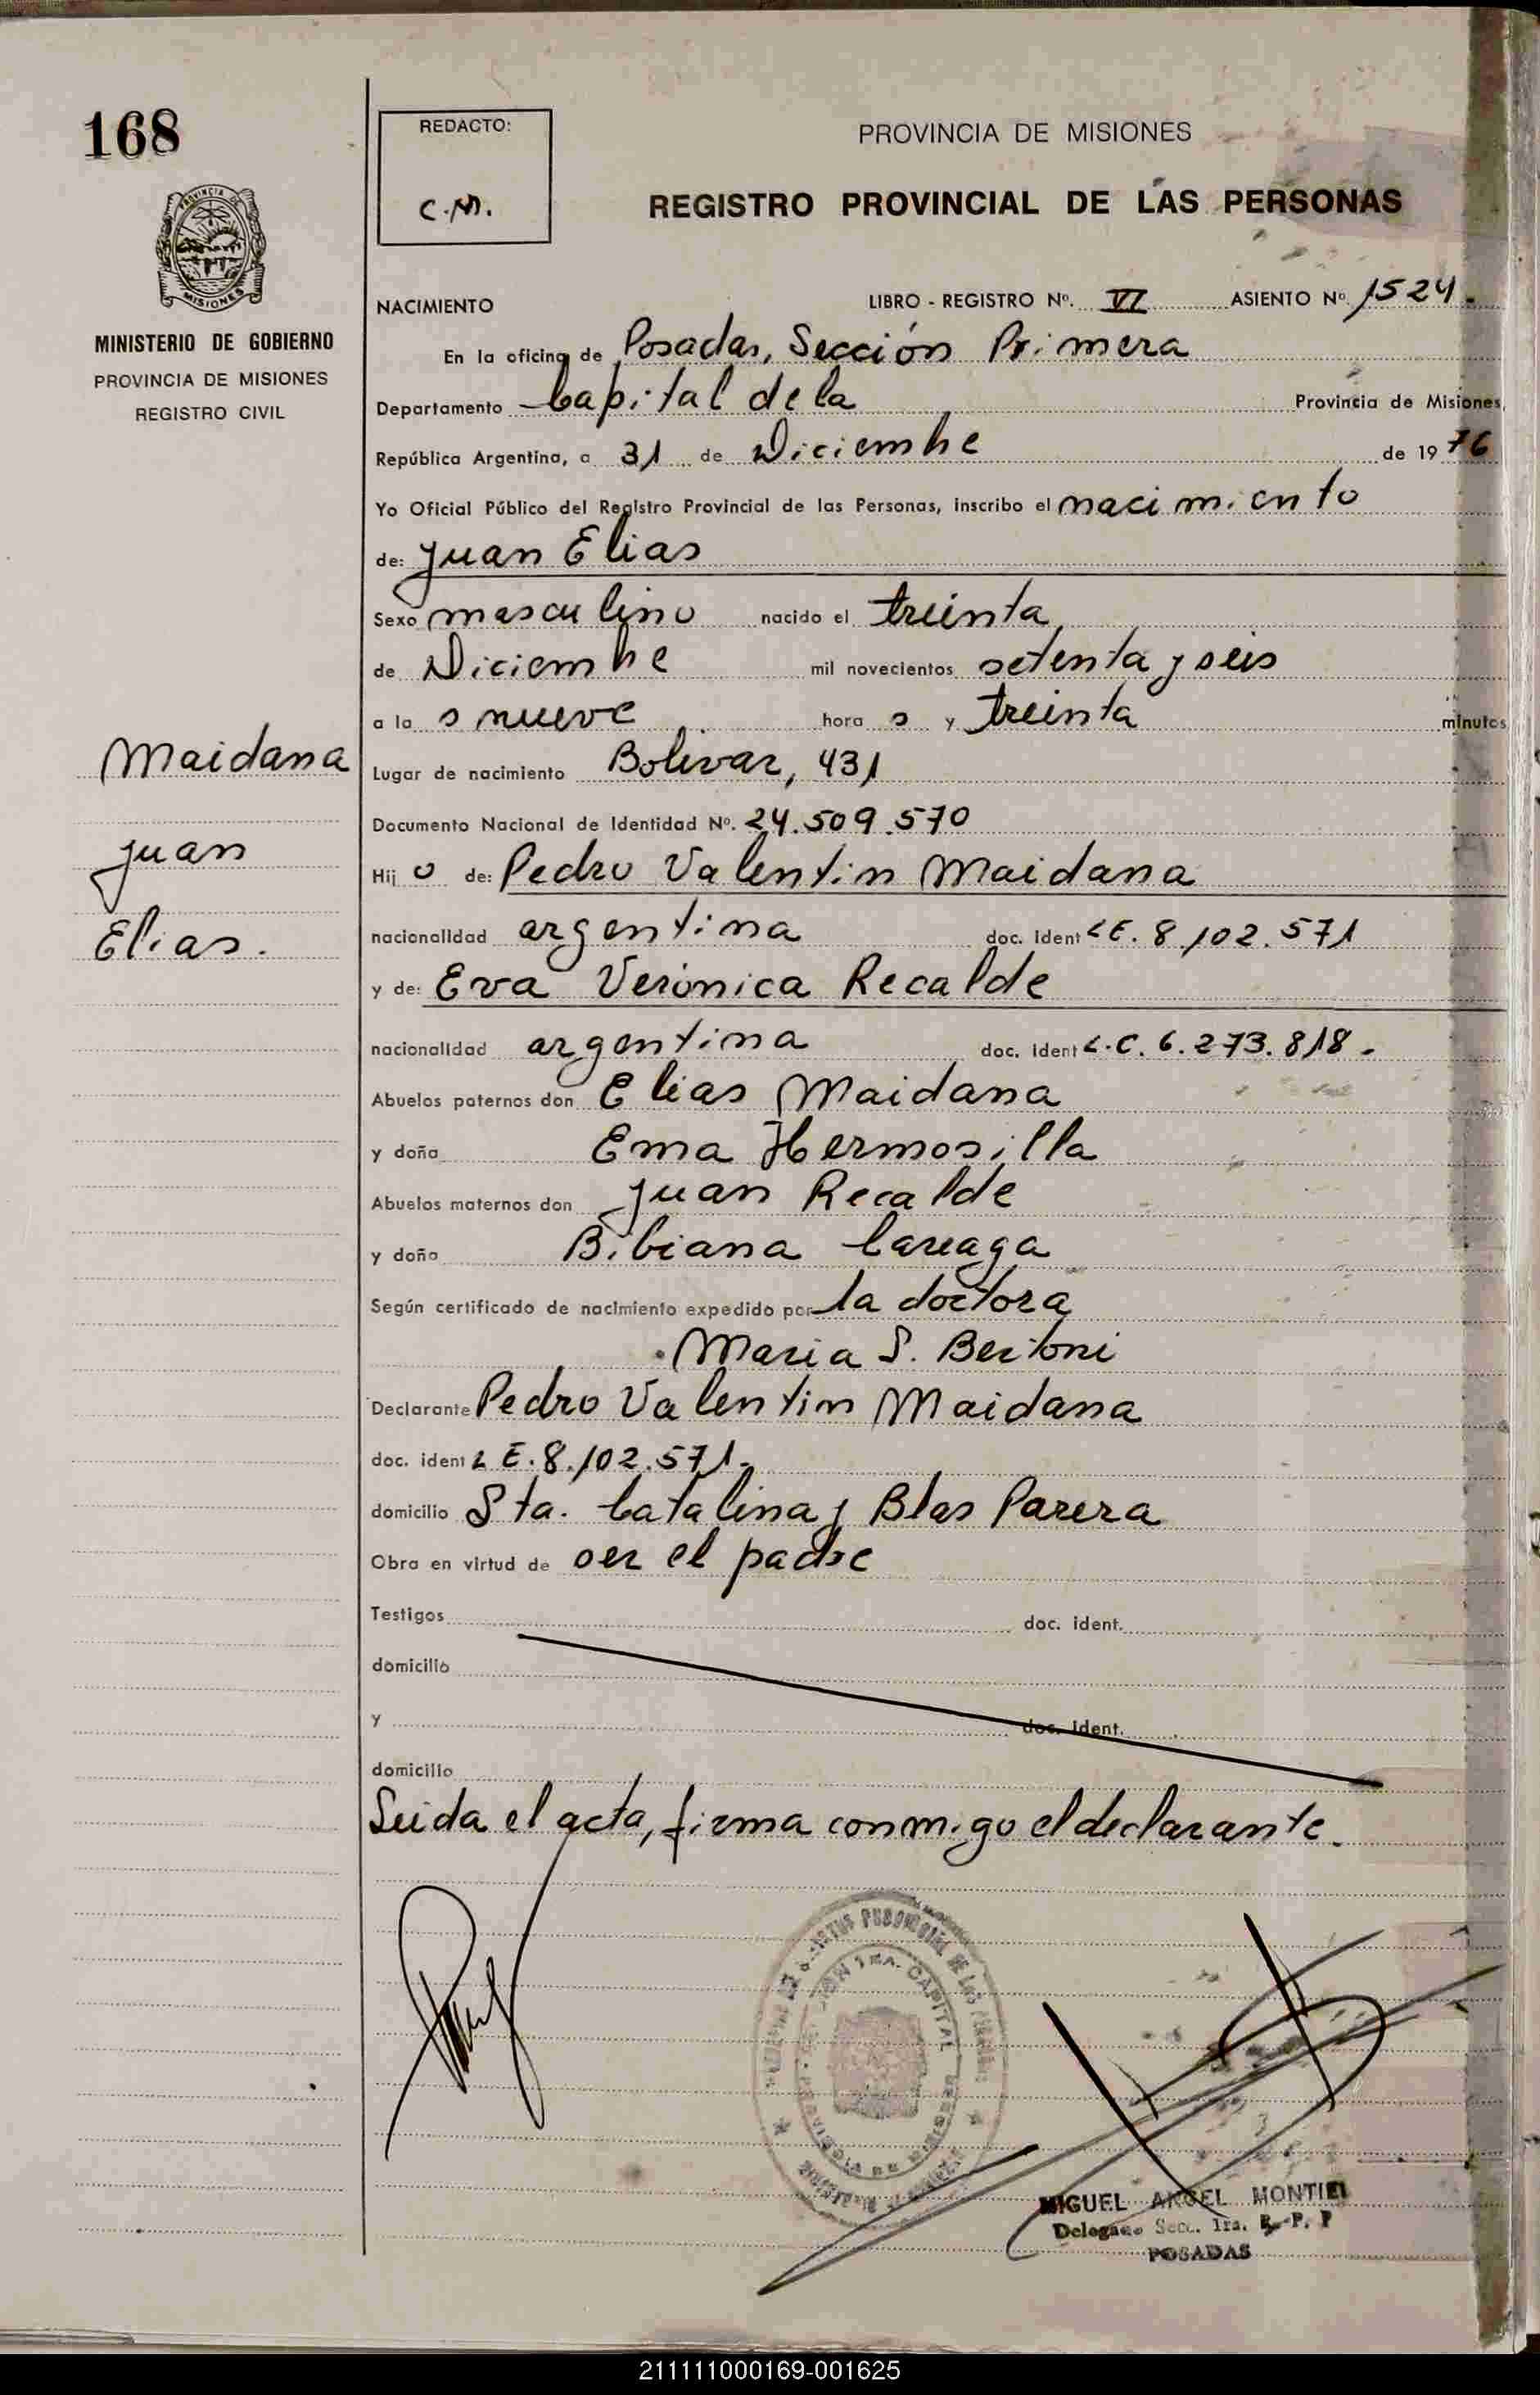 168
REDACTO:
C.M.
PROVINCIA DE MISIONES
REGISTRO PROVINCIAL DE LAS PERSONAS
PROVINCIA DE
MISIONES
MINISTERIO DE GOBIERNO
PROVINCIA DE MISIONES
REGISTRO CIVIL
NACIMIENTO LIBRO - REGISTRO Nº. VI ASIENTO Nº. 1524.
En la oficina de Posadas, Sección Primera
Departamento Capital de la Provincia de Misiones,
República Argentina, a 31 de Diciembre de 1976
Yo Oficial Público del Registro Provincial de las Personas, inscribo el nacimiento
de: Juan Elias
Sexo masculino nacido el treinta
de Diciembre mil novecientos setenta y seis
a la s nueve hora s y treinta minutos
Maidana
Juan
Elias.
Lugar de nacimiento Bolivar, 431
Documento Nacional de Identidad Nº. 24.509.570
Hij o de: Pedro Valentin Maidana
nacionalidad argentina doc. ident LE. 8.102.571
y de: Eva Verónica Recalde
nacionalidad argentina doc. ident L.C. 6.273.818.
Abuelos paternos don Elias Maidana
y doña Ema Hermosilla
Abuelos maternos don Juan Recalde
y doña Bibiana Careaga
Según certificado de nacimiento expedido por la doctora
Maria S. Bertoni
Declarante Pedro Valentin Maidana
doc. ident L E. 8.102.571.
domicilio Sta. Catalina y Blas Parera
Obra en virtud de ser el padre
Testigos doc. ident.
domicilio
y doc. ident.
domicilio
Leida el acta, firma conmigo el declarante.
CAPITAL
MIGUEL ANGEL MONTIEL
Delegado Secc. 1ra. R. P. P
POSADAS
211111000169-001625